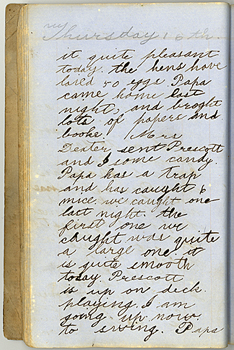 Thursday 16th.
it quite pleasant
today. the hens have
laied 50 eggs Papa
came home last
night, and broght
lots of papers and
books. Mrs
Dexter sent Prescott
and I some candy.
Papa has a trap
and has caught 6
mice we caught one
last night. the
first one we
caught was quite
a large one. it
is quite smooth
today. Prescott
is up on deck
playing. I am
going up now
to swing. Papa